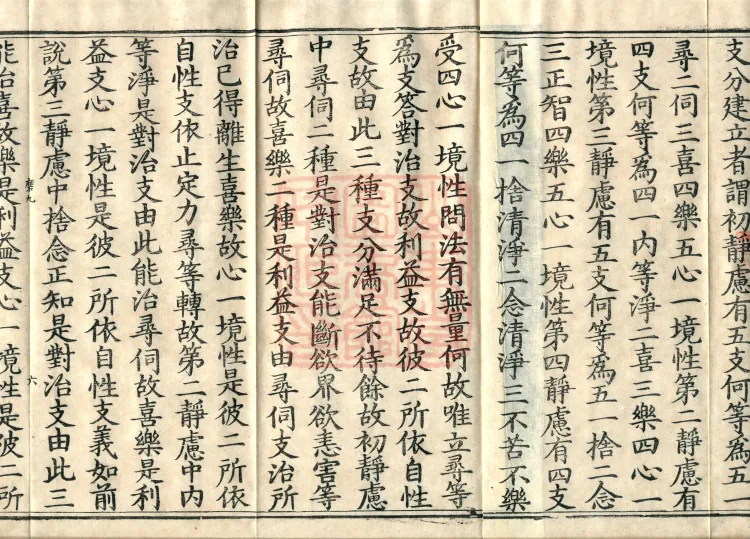 支分建立者謂初靜慮有五支何等為五一
尋二伺三喜四樂五心一境性第二靜慮有
四支何等為四一內等淨二喜三樂四心一
境性第三靜慮有五支何等爲五一捨二念
三正智四樂五心一境性第四靜慮有四支
何等為四一捨清淨二念清淨三不苦不樂
受四心一境性問法有無量何故唯立尋等
爲支答對治支故利益支故彼二所依自性
支故由此三種支分滿足不待餘故初靜慮
中尋伺二種是對治支能斷欲界欲恚害等
尋伺故喜樂二種是利益支由尋伺支治所
治已得離生喜樂故心一境性是彼二所依
自性支依止定力尋等轉故第二靜慮中內
等淨是對治支由此能治尋伺故喜樂是利
益支心一境性是彼二所依自性支義如前
說第三靜慮中捨念正知是對治支由此三
九 六
能治喜故樂是利益支心一境性是彼二所